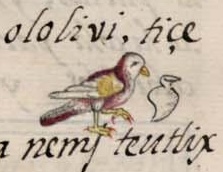 ololivi, tiçe
a nemj teutlix